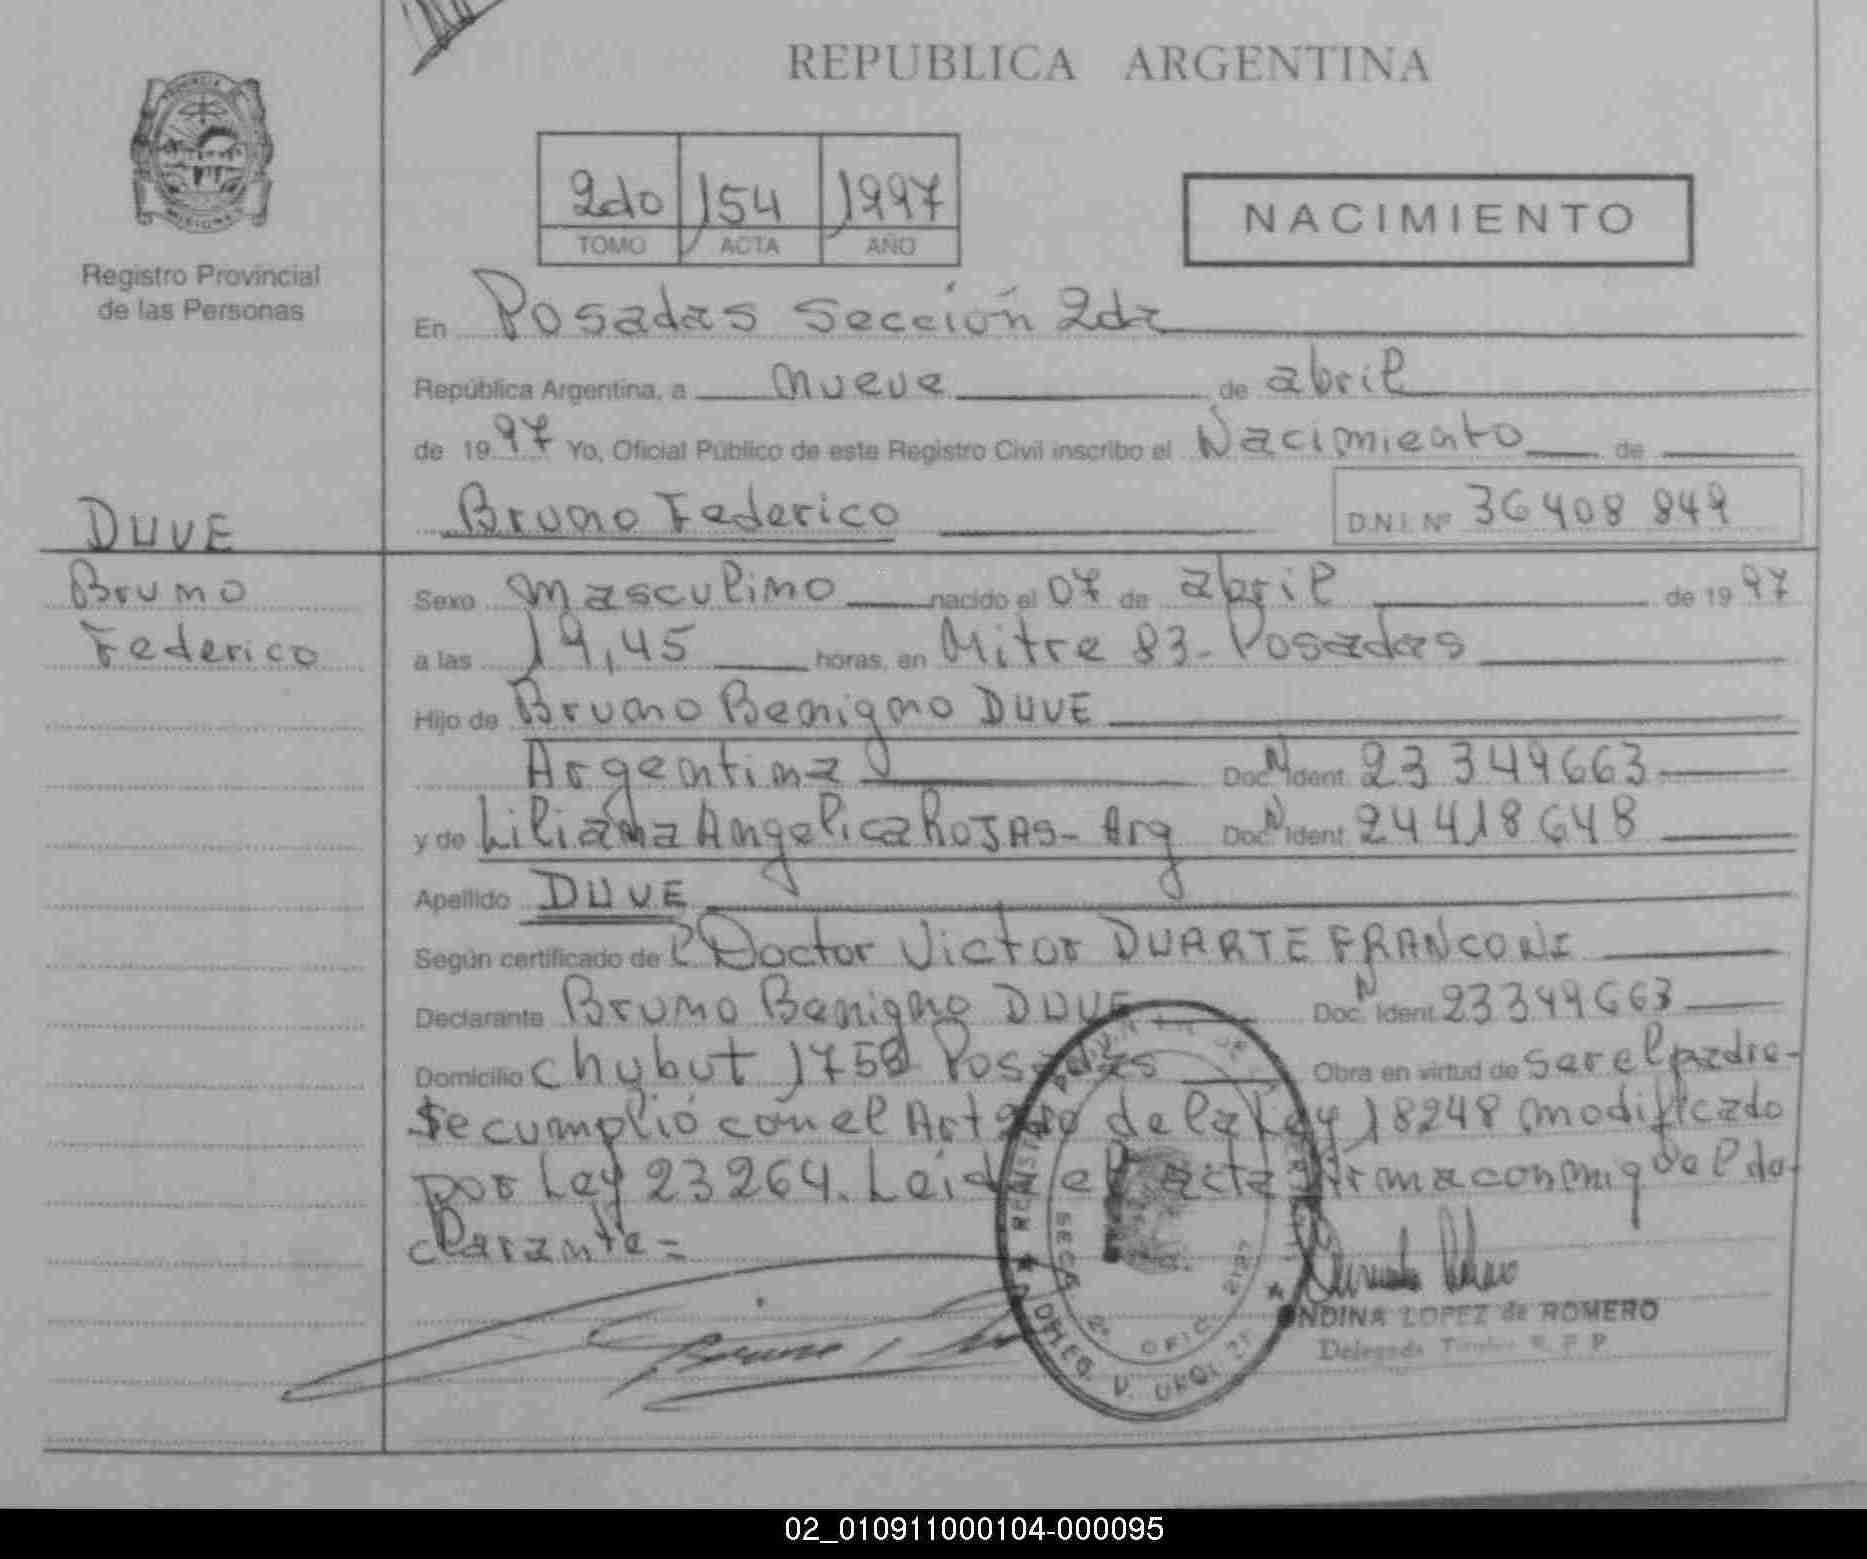 REPUBLICA ARGENTINA
2do 154 1997
TOMO ACTA AÑO
NACIMIENTO
Registro Provincial
de las Personas
En Posadas Sección 2da
República Argentina, a nueve de abril
de 1997 Yo, Oficial Público de este Registro Civil inscribo el Nacimiento de
DUVE
Bruno Federico D.N.I. Nº 36408 849
Bruno
Federico
Sexo masculino nacido el 07 de abril de 1997
a las 19,45 horas, en Mitre 83 - Posadas
Hijo de Bruno Benigno DUVE
Argentina Doc. N Ident. 23 349663
y de Liliana Angelica ROJAS - Arg Doc. N Ident. 24418648
Apellido DUVE
Según certificado del Doctor Victor DUARTE FRANCONI
Declarante Bruno Benigno DUVE Doc. N Ident. 23349663
Domicilio Chubut 1758 Posadas Obra en virtud de ser el padre-
Se cumplió con el Art 2do de la Ley 18248 modificado
por Ley 23264. Leida el acta firma conmigo el de-
clarante =
SECA 2º OFIC.
NDINA LOPEZ de ROMERO
Delegada Titular R. P. P.
02_010911000104-000095